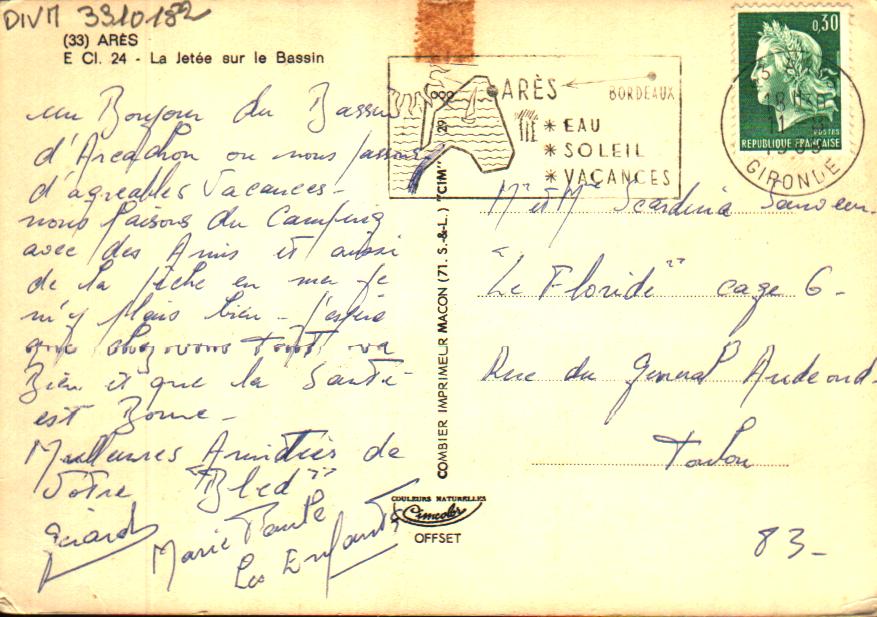 DIVM 3310182
(33) ARÈS
E Cl. 24 - La Jetée sur le Bassin
un Bonjour du Bassin
d'Arcachon ou nous passons
d'agréables Vacances -
nous faisons du Camping
avec des Amis et aussi
de la pêche en mer je
m'y plais bien - j'espère
que chez vous tout va
Bien et que la Santé
est Bonne -
Meilleures Amitiés de
Votre "Bled"
Gérard
Marie Paule
Les Enfants
COMBIER IMPRIMEUR MACON (71. S.-&-L.) "CIM"
29
COULEURS NATURELLES
Cimcolor
OFFSET
ARÈS
BORDEAUX
* EAU
* SOLEIL
* VACANCES
0,30
POSTES
REPUBLIQUE FRANÇAISE
GIRONDE
Mr et Me Scardina
"Le Floride" cage 6 -
Rue du général Audeoud
Toulon
83 -